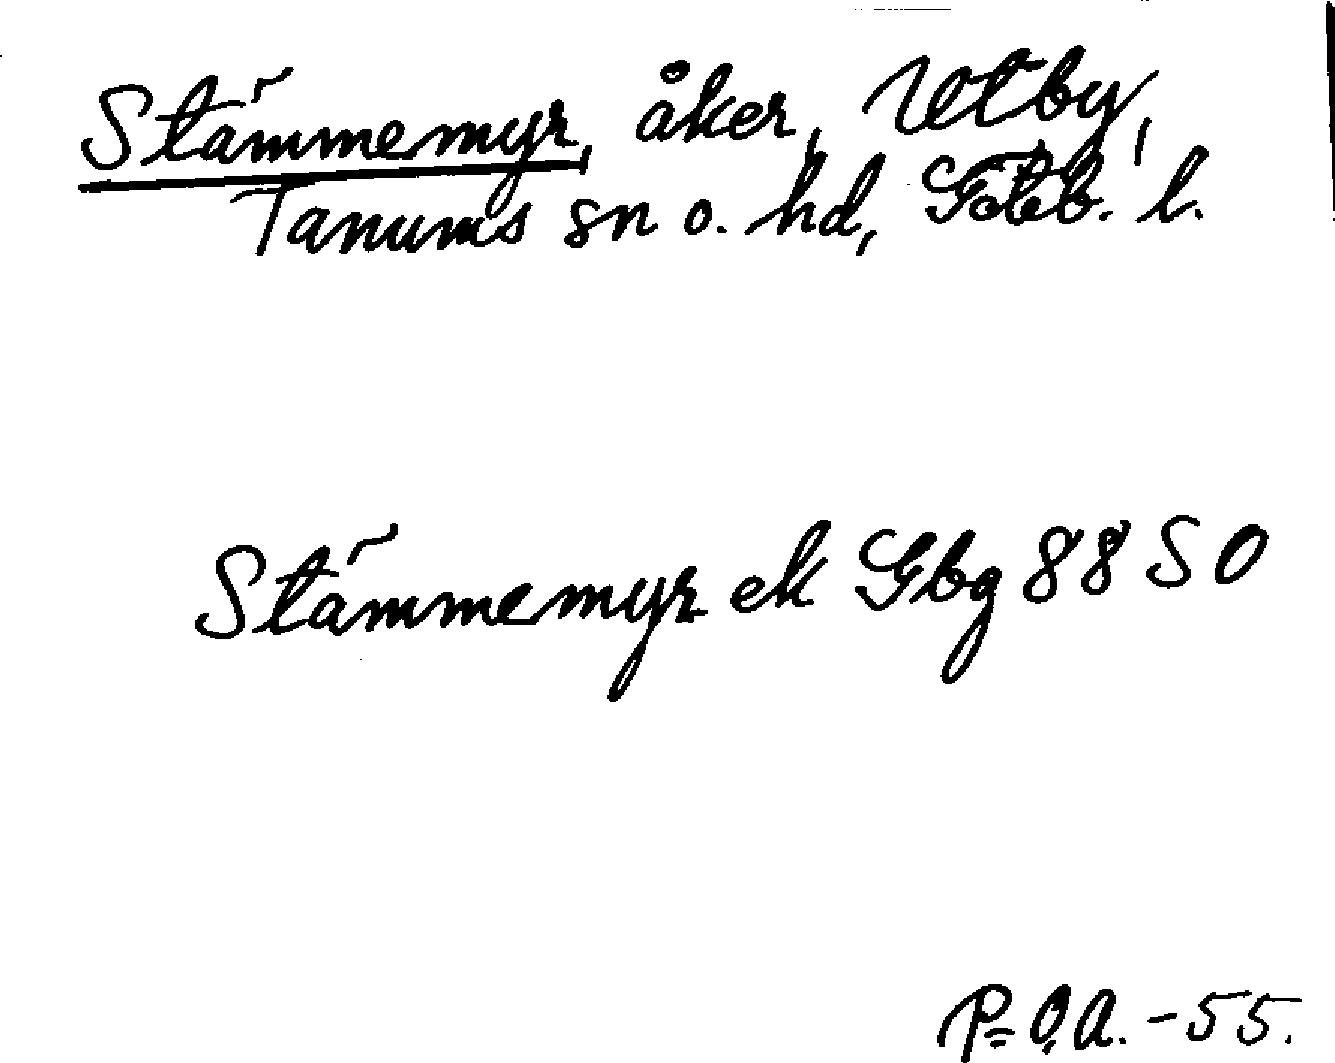 Stämmemyr, åker, Utby,
Tanums sn o. hd, Göteb. l.
Stämmemyr ek Gbg 88 SO
P=O,A. -55.